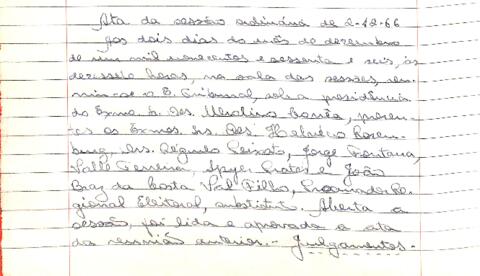 Ata da sessão ordinária de 2-12-66
Aos dois dias do mês de dezembro
de um mil novecentos e sessenta e seis, às
dezessete horas, na sala das sessões, reu-
niu-se o E. Tribunal, sob a presidência
do Exmo. Sr. Des. Merolino Corrêa, presen-
tes os Exmos. Srs. Des. Helvécio Rosen-
burg, Drs. Régulo Peixoto, Jorge Fontana,
Valle Ferreira, Spyer Prates e João
Braz da Costa Val Filho, Procurador Re-
gional Eleitoral, substituto. Aberta a
sessão, foi lida e aprovada a ata
da reunião anterior.- Julgamentos-